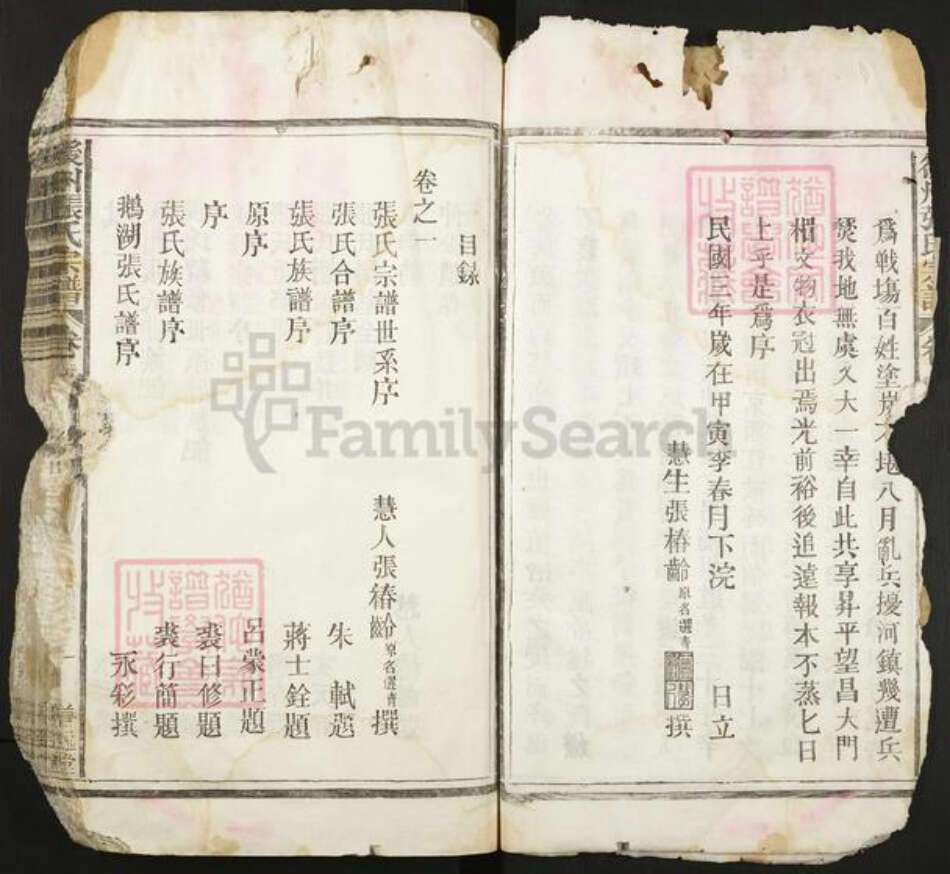 爲戰塲百姓塗炭
八月亂兵擾河鎮幾遭兵
燹我地無虞又大一幸自此共享昇平望昌大門
楣文物衣冠出焉光前裕後追遠報本不蒸匕日
上乎是爲序
民國三年歲在甲寅季春月下浣 日立
慧生張椿齡原名選青 撰
目錄
卷之一
張氏宗譜世系序 慧人張椿齡原名選青撰
張氏合譜序 朱軾題
張氏族譜序 蔣士銓題
原序 呂蒙正題
序 裘曰修題
張氏族譜序 裘行簡題
鵝湖張氏譜序 永彩撰
張氏宗譜
FamilySearch